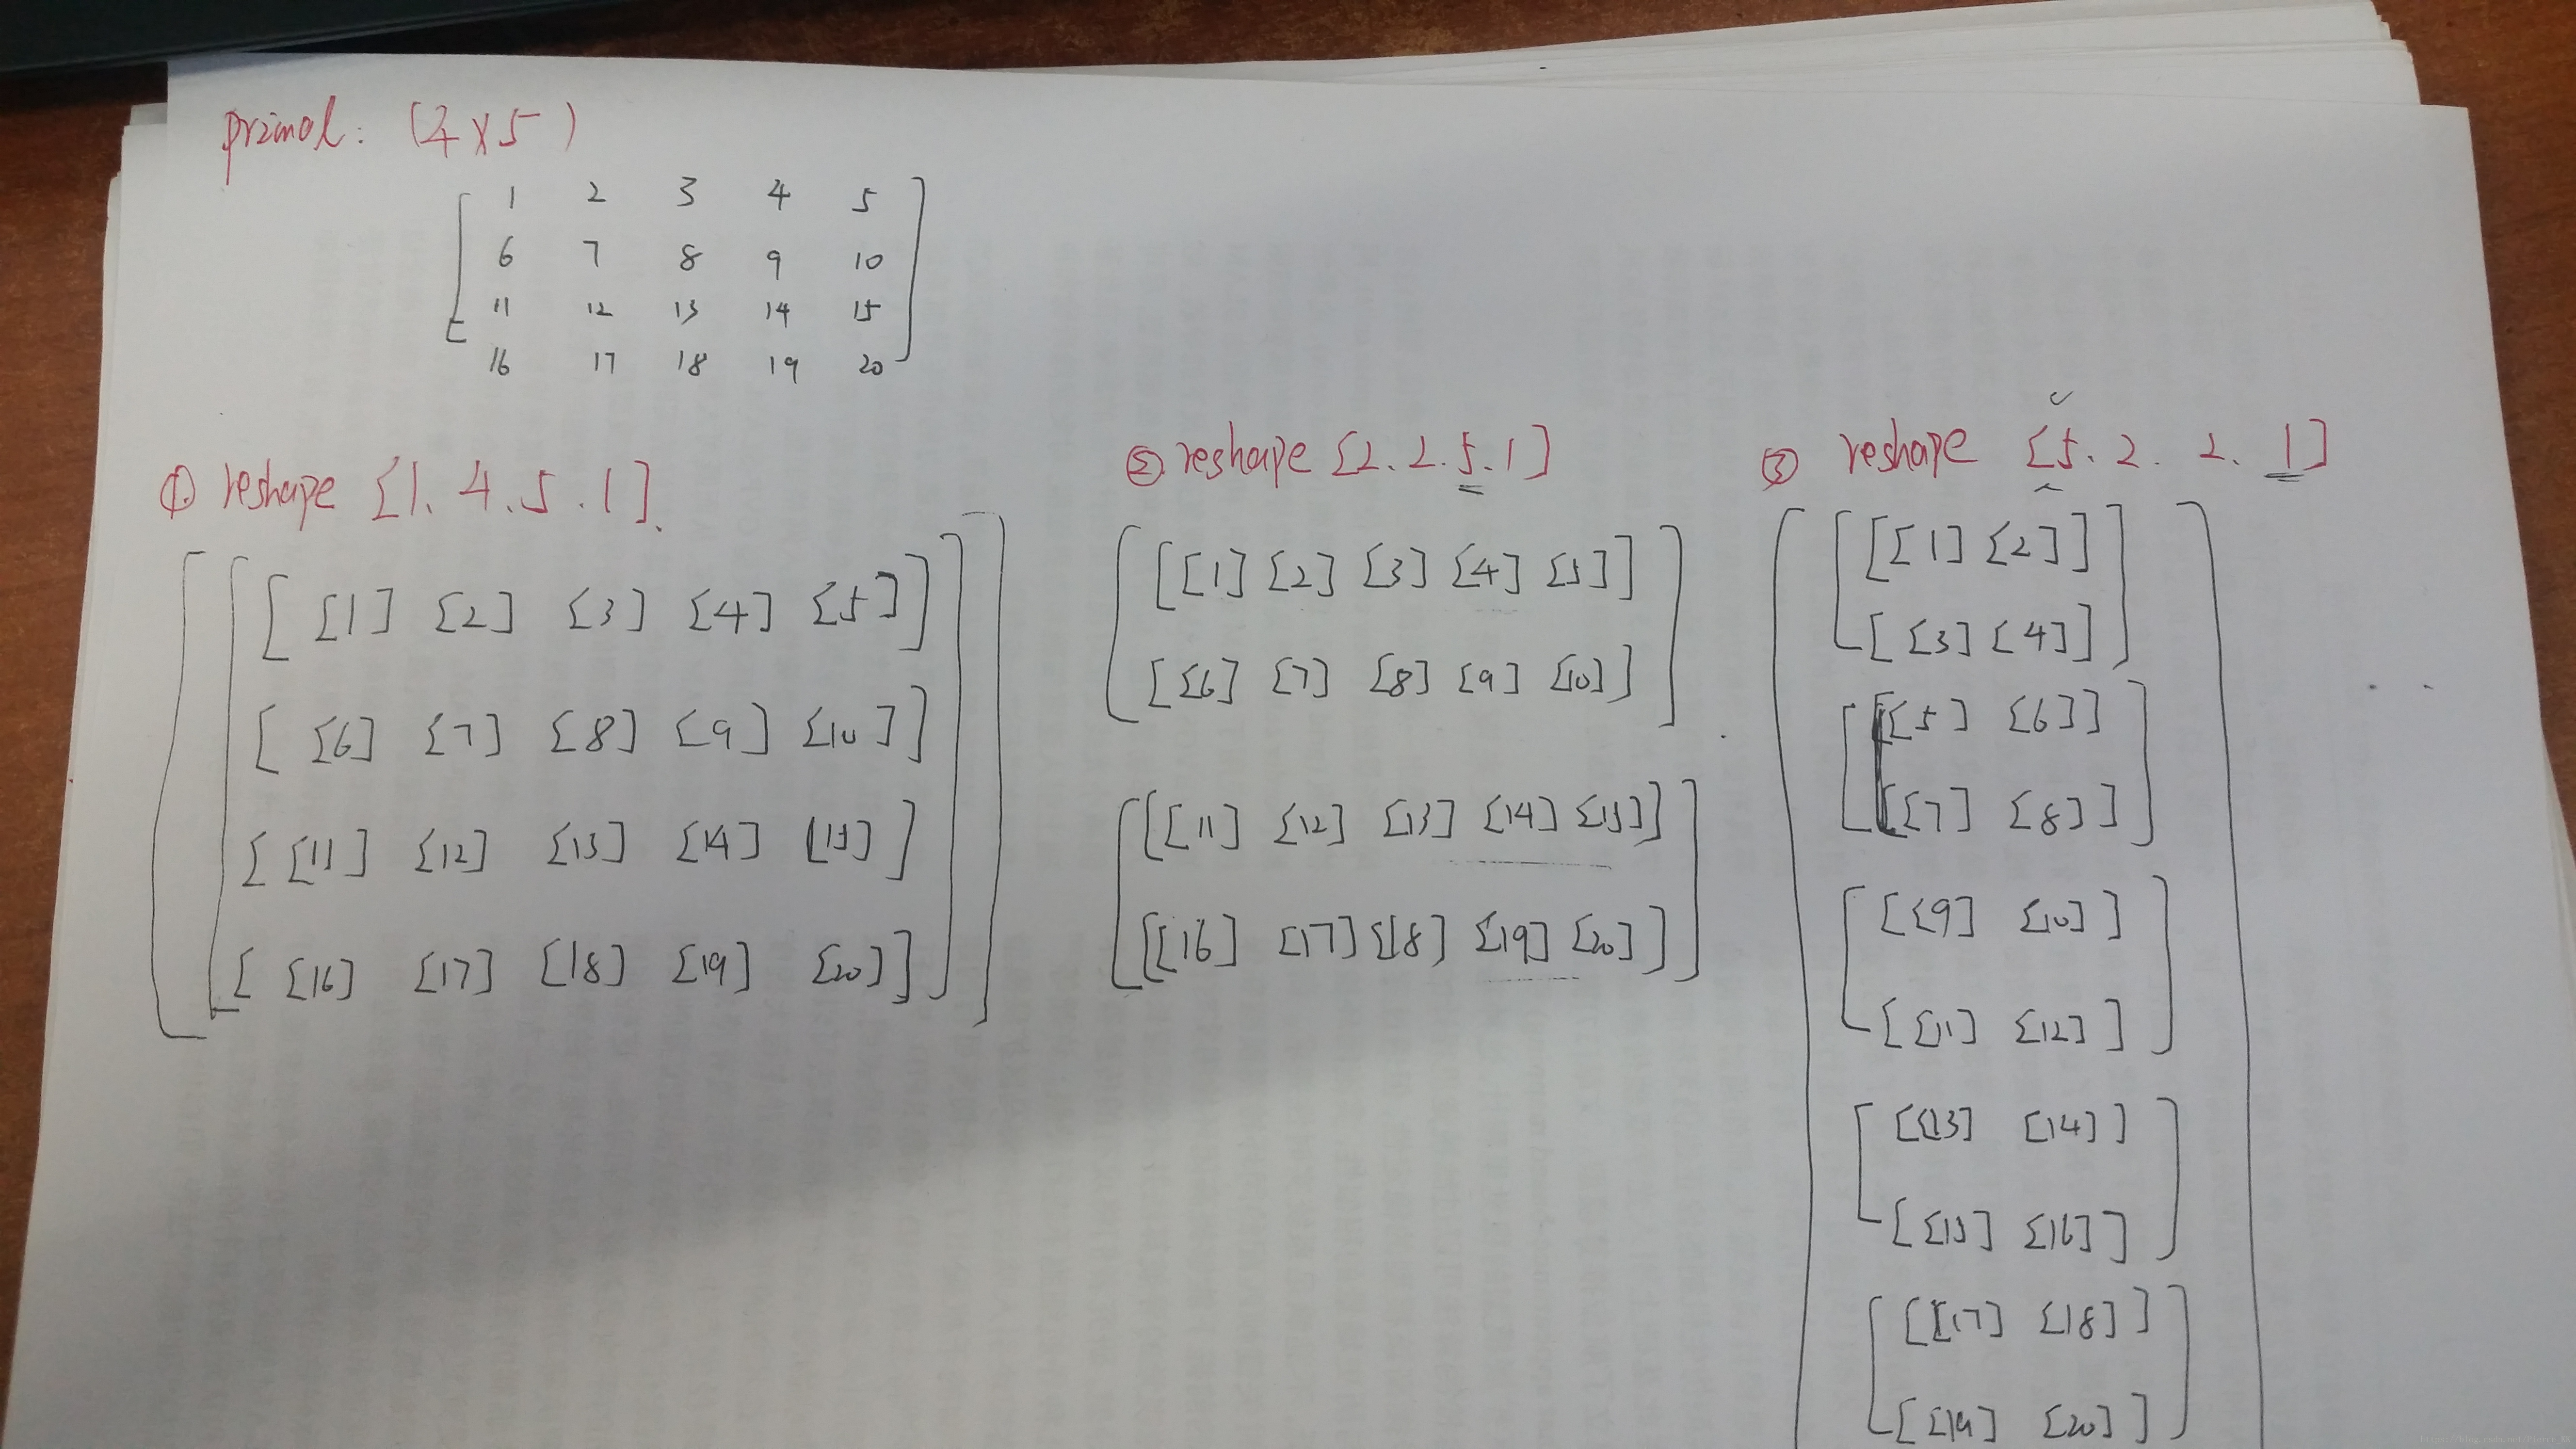 primal: (4×5)
1 2 3 4 5
6 7 8 9 10
11 12 13 14 15
16 17 18 19 20
① reshape [1. 4. 5. 1].
[[[[1] [2] [3] [4] [5]]
[[6] [7] [8] [9] [10]]
[[11] [12] [13] [14] [15]]
[[16] [17] [18] [19] [20]]]]
② reshape [2. 2. 5. 1]
[[[1] [2] [3] [4] [5]]
[[6] [7] [8] [9] [10]]]
[[[11] [12] [13] [14] [15]]
[[16] [17] [18] [19] [20]]]
③ reshape [5. 2. 2. 1]
[[[[1] [2]]
[[3] [4]]]
[[[5] [6]]
[[7] [8]]]
[[[9] [10]]
[[11] [12]]]
[[[13] [14]]
[[15] [16]]]
[[[17] [18]]
[[19] [20]]]